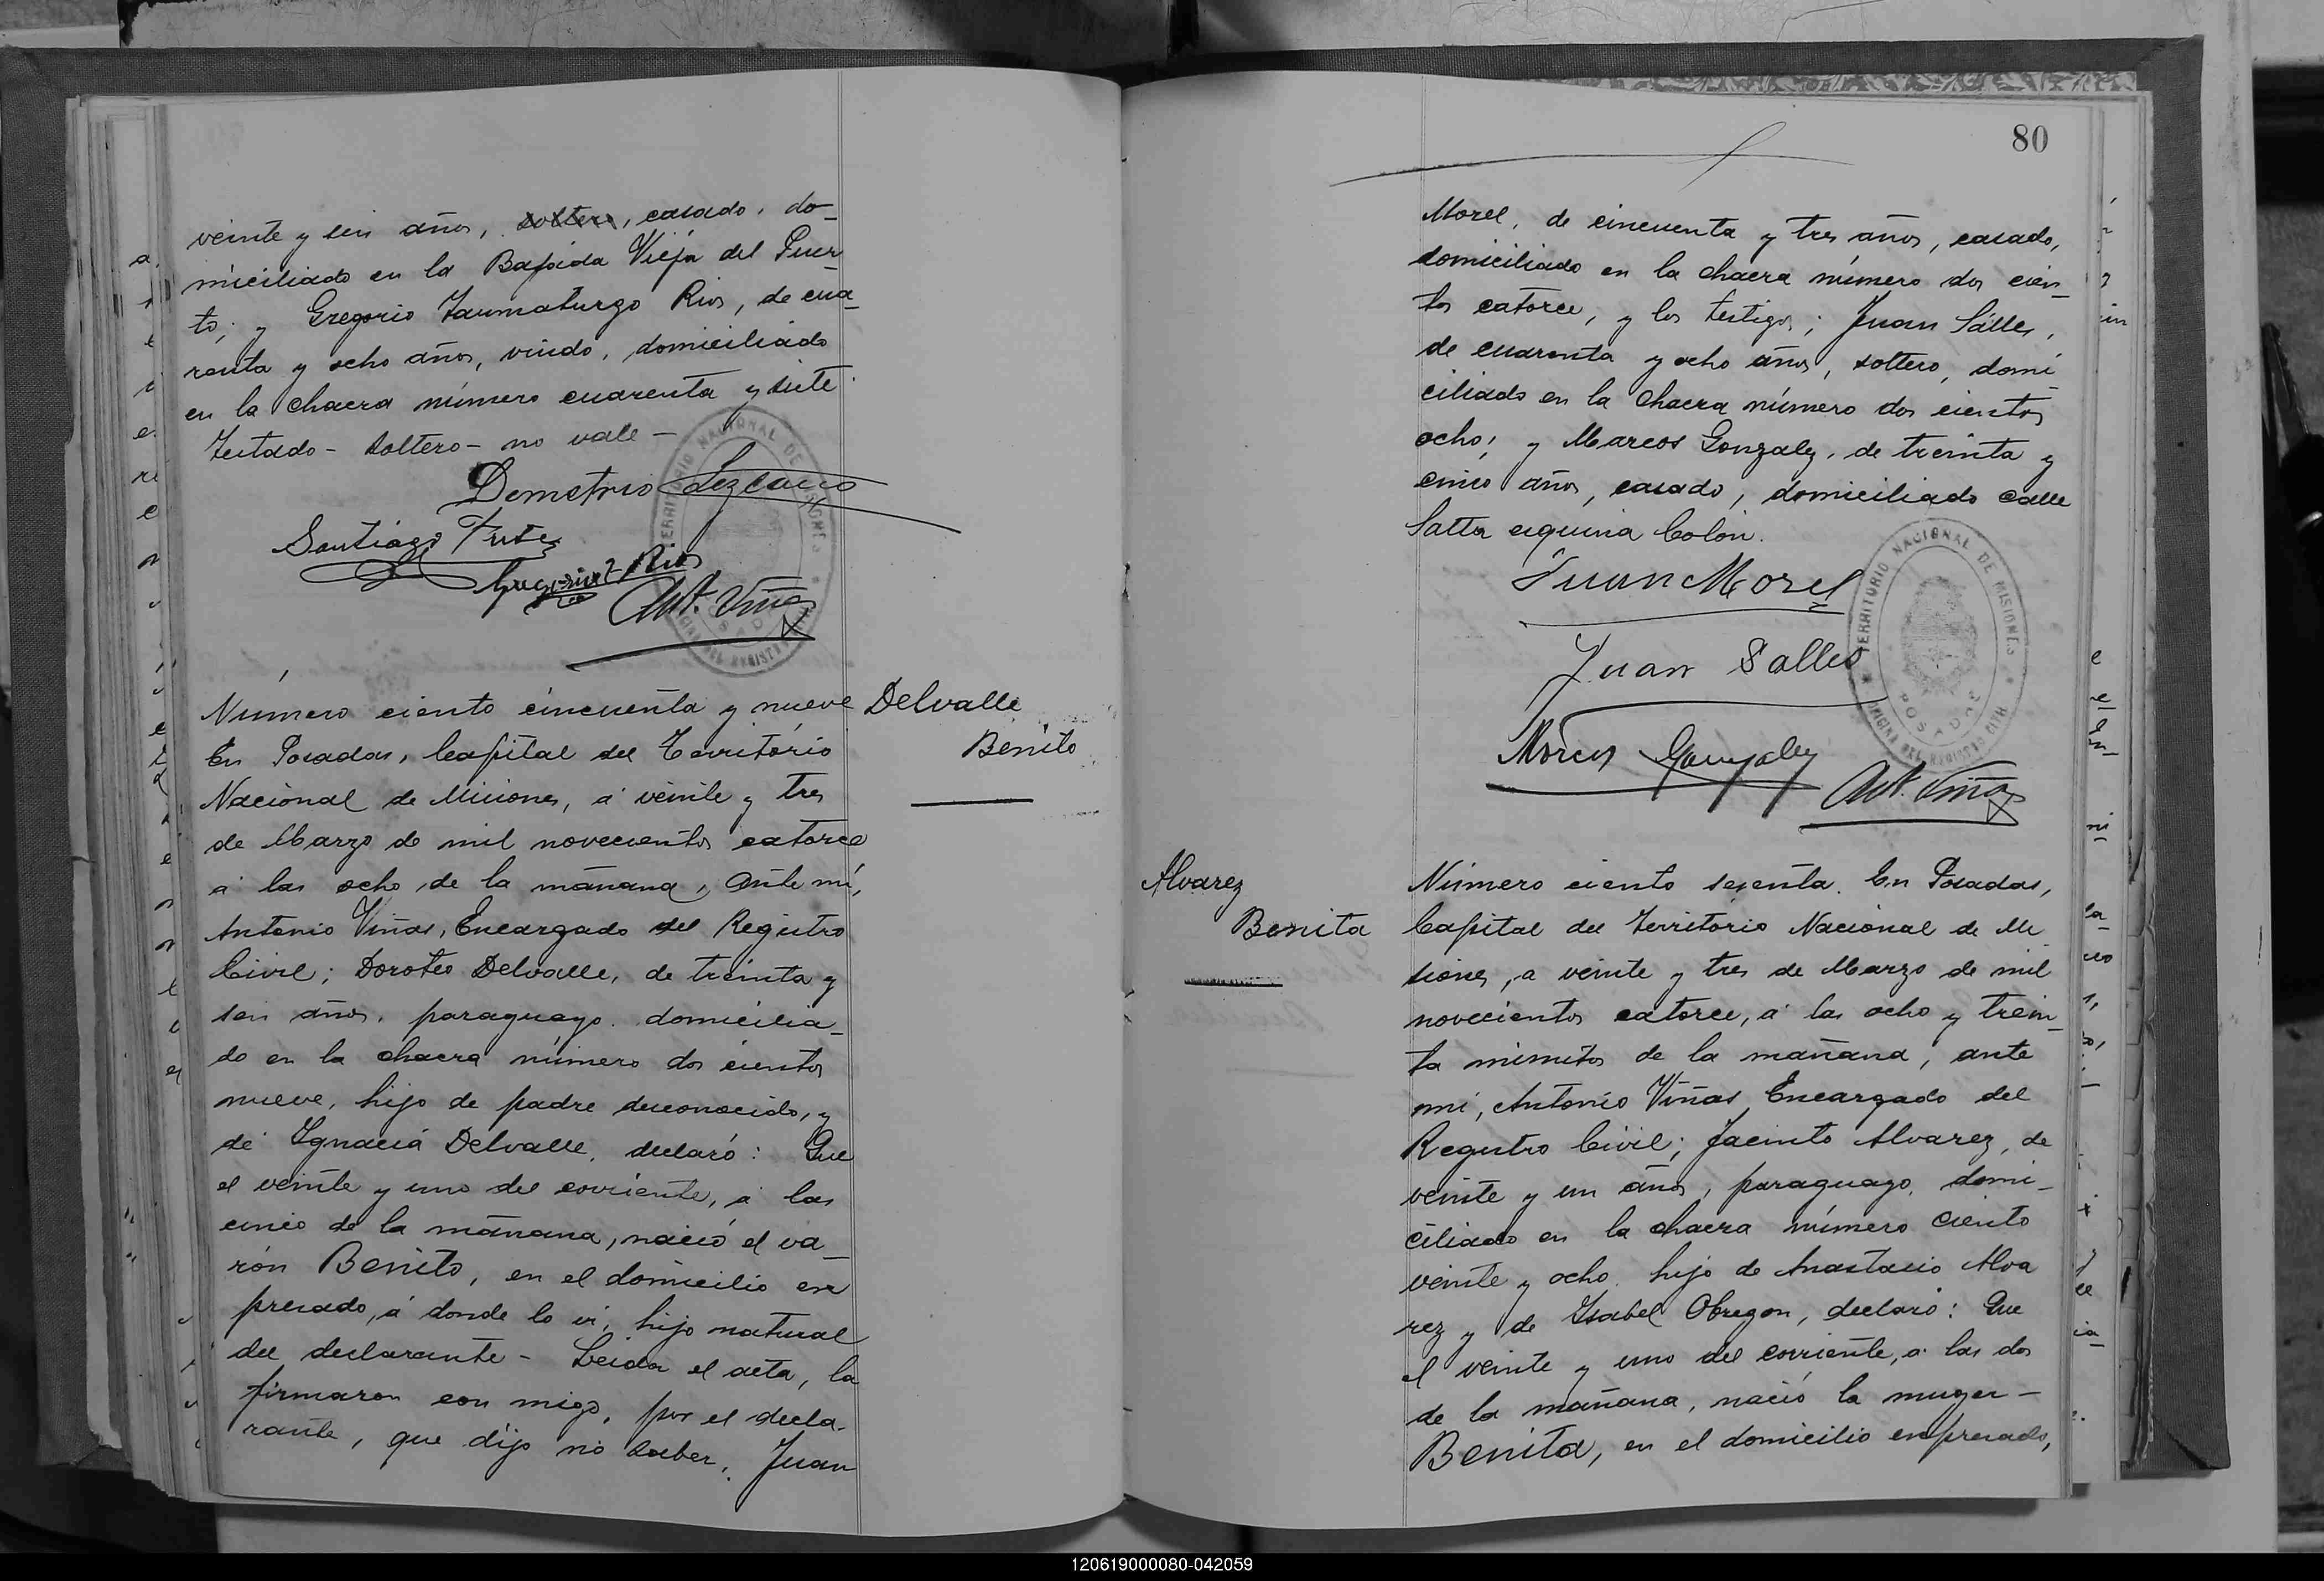 veinte y seis años, soltero, casado, do-
miciliado en la Bajada Vieja del Puer-
to; y Gregorio Taumaturgo Rios, de cua-
renta y ocho años, viudo, domiciliado
en la chacra número cuarenta y siete.
Testado - soltero - no vale -
Demetrio Lezcano
Santiago
Gregorio T Rios
Ant. Viñas
TERRITORIO NACIONAL DE MISIONES
Número ciento cincuenta y nueve
En Posadas, Capital del Territorio
Nacional de Misiones, á veinte y tres
de Marzo de mil novecientos catorce
á las ocho de la mañana, ante mi,
Antonio Viñas, Encargado del Registro
Civil; Doroteo Delvalle, de treinta y
seis años, paraguayo, domicilia-
do en la chacra número dos cientos
nueve, hijo de padre desconocido, y
de Ignacia Delvalle, declaró: Que
el veinte y uno del corriente, á las
cinco de la mañana, nació el va-
rón Benito, en el domicilio ex
presado, á donde lo vi; hijo natural
del declarante - Leida el acta, la
firmaron con migo, por el decla-
rante, que dijo no saber, Juan
Delvalle
Benito
80
Morel, de cincuenta y tres años, casado,
domiciliado en la chacra número dos cien-
tos catorce, y los testigos; Juan Sálles,
de cuarenta y ocho años, soltero, domi-
ciliado en la chacra número dos cientos
ocho; y Marcos Gonzalez, de treinta y
cinco años, casado, domiciliado calle
Salta esquina Colón.
Juan Morel
Juan Salles
Marcos Gonzalez
Ant. Viñas
TERRITORIO NACIONAL DE MISIONES
OFICINA DEL REGISTRO CIVIL
POSADAS
Alvarez
Benita
Número ciento sesenta. En Posadas,
Capital del Territorio Nacional de Mi
siones, a veinte y tres de Marzo de mil
novecientos catorce, á las ocho y trein-
ta minutos de la mañana, ante
mi, Antonio Viñas, Encargado del
Registro Civil; Jacinto Alvarez, de
veinte y un años, paraguayo, domi-
ciliado en la chacra número ciento
veinte y ocho, hijo de Anastacio Alva
rez y de Isabel Obregon, declaró: Que
el veinte y uno del corriente, a las dos
de la mañana, nació la muger -
Benita, en el domicilio expresado,
120619000080-042059